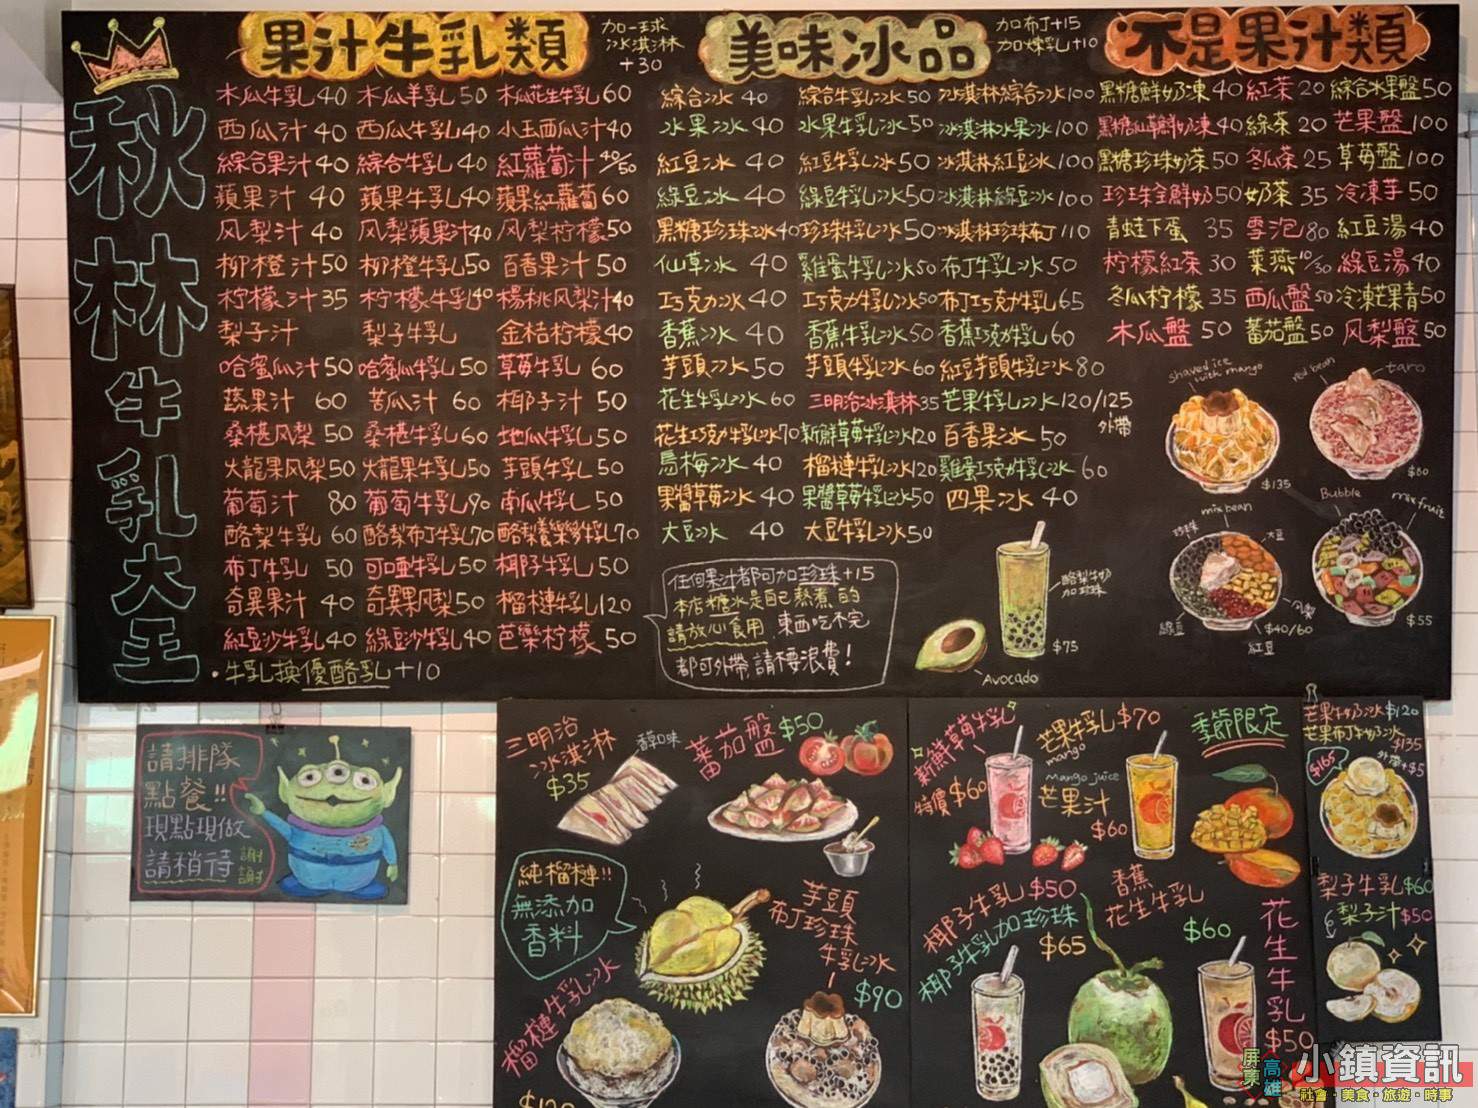 秋林牛乳大王
果汁牛乳類
加一球
冰淇淋
+30
木瓜牛乳40 木瓜羊乳50 木瓜花生牛乳60
西瓜汁40 西瓜牛乳40 小玉西瓜汁40
綜合果汁40 綜合牛乳40 紅蘿蔔汁40/50
蘋果汁40 蘋果牛乳40 蘋果紅蘿蔔60
风梨汁40 风梨蘋果汁40 风梨柠檬50
柳橙汁50 柳橙牛乳50 百香果汁50
柠檬汁35 柠檬牛乳40 楊桃风梨汁40
梨子汁 梨子牛乳 金桔柠檬40
哈蜜瓜汁50 哈蜜瓜牛乳50 草莓牛乳60
蔬果汁60 苦瓜汁60 椰子汁50
桑椹风梨50 桑椹牛乳60 地瓜牛乳50
火龍果风梨50 火龍果牛乳50 芋頭牛乳50
葡萄汁80 葡萄牛乳90 南瓜牛乳50
酪梨牛乳60 酪梨布丁牛乳70 酪梨養樂多牛乳70
布丁牛乳50 可口亞牛乳50 椰子牛乳50
奇異果汁40 奇異果风梨50 榴槤牛乳120
紅豆沙牛乳40 綠豆沙牛乳40 芭樂柠檬50
·牛乳換優酪乳+10
美味冰品
加布丁+15
加煉乳+10
綜合冰40 綜合牛乳冰50 冰淇淋綜合冰100
水果冰40 水果牛乳冰50 冰淇淋水果冰100
紅豆冰40 紅豆牛乳冰50 冰淇淋紅豆冰100
綠豆冰40 綠豆牛乳冰50 冰淇淋綠豆冰100
黑糖珍珠冰40 珍珠牛乳冰50 冰淇淋珍珠布丁110
仙草冰40 雞蛋牛乳冰50 布丁牛乳冰50
巧克力冰40 巧克力牛乳冰50 布丁巧克力牛乳65
香蕉冰40 香蕉牛乳冰50 香蕉巧克力牛乳60
芋頭冰50 芋頭牛乳冰60 紅豆芋頭牛乳冰80
花生牛乳冰60 三明治冰淇淋35 芒果牛乳冰120/125
外帶
花生巧克力牛乳冰70 新鮮草莓牛乳冰120 百香果冰50
烏梅冰40 榴槤牛乳冰120 雞蛋巧克力牛乳冰60
果醬草莓冰40 果醬草莓牛乳冰50 四果冰40
大豆冰40 大豆牛乳冰50
任何果汁都可加珍珠+15
本店糖水是自己熬煮的
請放心食用 東西吃不完
都可外帶,請不要浪費!
酪梨牛奶
加珍珠
$75
Avocado
不是果汁類
黑糖鮮奶凍40 紅茶20 綜合水果盤50
黑糖仙草鮮奶凍40 綠茶20 芒果盤100
黑糖珍珠奶茶50 冬瓜茶25 草莓盤100
珍珠全鮮奶50 奶茶35 冷凍芋50
青蛙下蛋35 雪泡80 紅豆湯40
柠檬紅茶30 菓燕10/30 綠豆湯40
冬瓜柠檬35 西瓜盤50 冷凍芒果青50
木瓜盤50 蕃茄盤50 风梨盤50
shaved ice
with mango
$135
red bean
taro
$60
mix bean
珍珠
大豆
綠豆
风梨
$40/60
紅豆
Bubble
mix fruit
$55
請排隊
點餐!!
現點現做
請稍待
謝謝
三明治
冰淇淋
$35
蕃茄盤$50
純榴槤!!
無添加
香料
榴槤牛乳冰
$120
芋頭
布丁珍珠
牛乳冰
$90
新鮮草莓牛乳
特價$60
芒果牛乳$70
mango
mango juice
芒果汁
$60
季節限定
椰子牛乳$50
椰子牛乳加珍珠
$65
香蕉
花生牛乳
$60
花生牛乳
$50
芒果牛奶冰$120
芒果布丁牛奶冰
$135
外帶+$5
$165
梨子牛乳$60
梨子汁$50
屏東
高雄
小鎮資訊
社會·美食·旅遊·時事